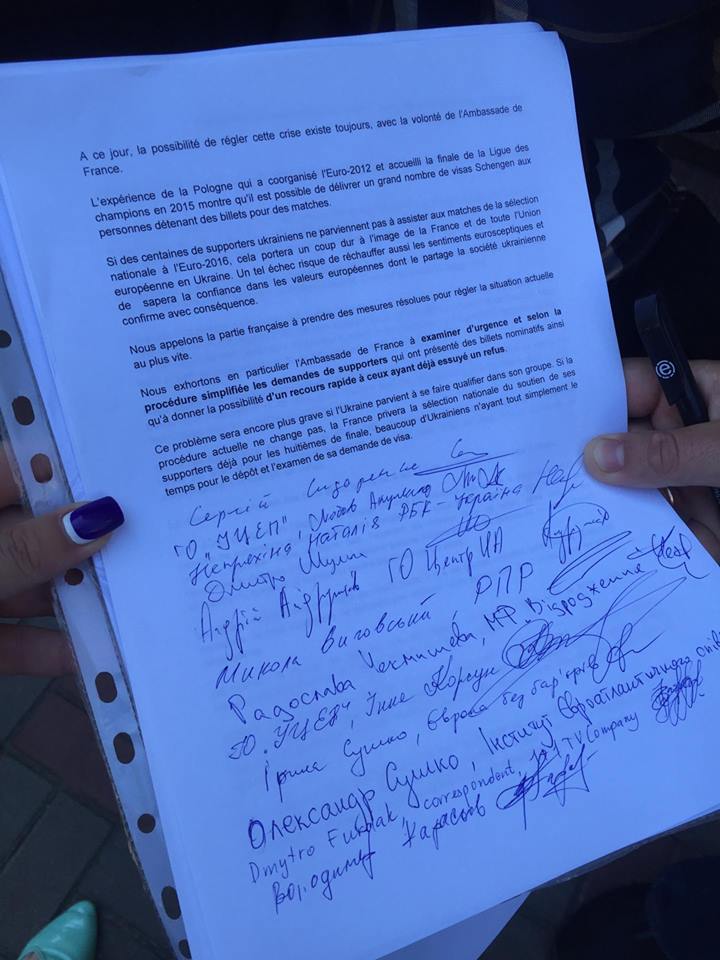 A ce jour, la possibilité de régler cette crise existe toujours, avec la volonté de l'Ambassade de
France.
L'expérience de la Pologne qui a coorganisé l'Euro-2012 et accueilli la finale de la Ligue des
champions en 2015 montre qu'il est possible de délivrer un grand nombre de visas Schengen aux
personnes détenant des billets pour des matches.
Si des centaines de supporters ukrainiens ne parviennent pas à assister aux matches de la sélection
nationale à l'Euro-2016, cela portera un coup dur à l'image de la France et de toute l'Union
européenne en Ukraine. Un tel échec risque de réchauffer aussi les sentiments eurosceptiques et
de sapera la confiance dans les valeurs européennes dont le partage la société ukrainienne
confirme avec conséquence.
Nous appelons la partie française à prendre des mesures résolues pour régler la situation actuelle
au plus vite.
Nous exhortons en particulier l'Ambassade de France à examiner d'urgence et selon la
procédure simplifiée les demandes de supporters qui ont présenté des billets nominatifs ainsi
qu'à donner la possibilité d'un recours rapide à ceux ayant déjà essuyé un refus.
Ce problème sera encore plus grave si l'Ukraine parvient à se faire qualifier dans son groupe. Si la
procédure actuelle ne change pas, la France privera la sélection nationale du soutien de ses
supporters déjà pour les huitièmes de finale, beaucoup d'Ukrainiens n'ayant tout simplement le
temps pour le dépôt et l'examen de sa demande de visa.
Сергій Сидоренко
ГО "УЦЕП", Любов Акуленко
Непряхіна Наталія РБК-Україна
Дмитро
Андрій ГО Центр UA
Микола Виговський, РПР
Радослава МФ "Відродження"
"УЦЕП", Інна Корсун
Ірина Сушко, Європа без бар'єрів
Олександр Сушко, Інститут Євроатлантичного
Dmytro correspondent, TV Company
Володимир Карасьов
e